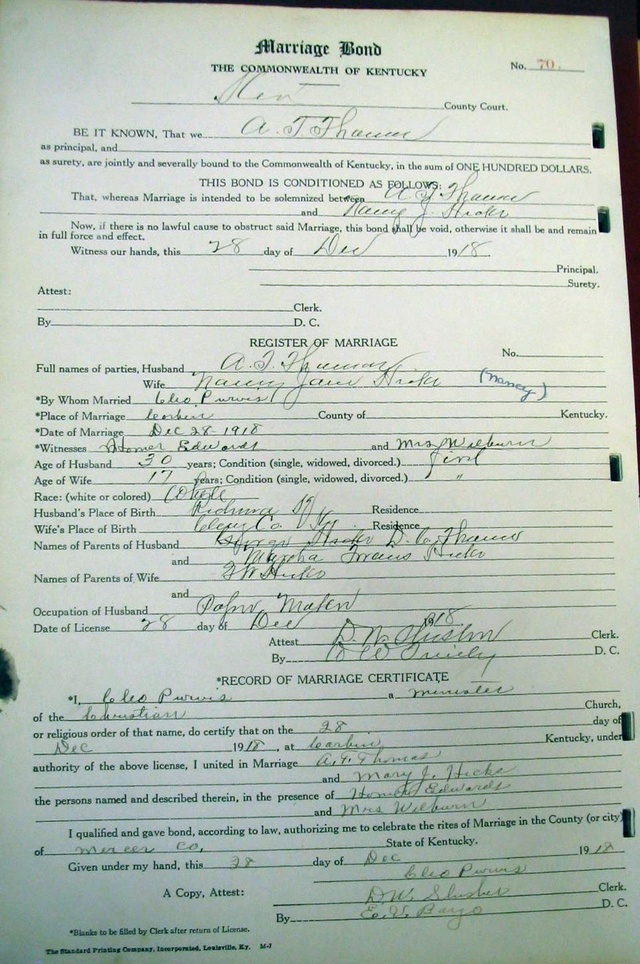 Marriage Bond
THE COMMONWEALTH OF KENTUCKY
No. 70.
County Court.
BE IT KNOWN, That we A. T. Thomas
as principal, and
as surety, are jointly and severally bound to the Commonwealth of Kentucky, in the sum of ONE HUNDRED DOLLARS.
THIS BOND IS CONDITIONED AS FOLLOWS:
That, whereas Marriage is intended to be solemnized between A. T. Thomas
and Nancy J Hicks
Now, if there is no lawful cause to obstruct said Marriage, this bond shall be void, otherwise it shall be and remain
in full force and effect.
Witness our hands, this 28 day of Dec 1918
Principal.
Surety.
Attest:
Clerk.
By D. C.
REGISTER OF MARRIAGE
No.
Full names of parties, Husband A. T. Thomas
Wife Nancy Jane Hicks (Nancy)
*By Whom Married Cleo Purvis
*Place of Marriage Corbin County of Kentucky.
*Date of Marriage Dec 28-1918
*Witnesses Homer Edwards and Mrs Wilburn
Age of Husband 30 years; Condition (single, widowed, divorced.)
Age of Wife 17 years; Condition (single, widowed, divorced.) "
Race: (white or colored) White
Husband's Place of Birth Richmond Ky Residence
Wife's Place of Birth Clay Co Ky Residence
Names of Parents of Husband George Hicks D. C. Thomas
and Martha Hicks
Names of Parents of Wife Hicks
and
Occupation of Husband Maker
Date of License 28 day of Dec 1918
Attest Clerk.
By D. C.
*RECORD OF MARRIAGE CERTIFICATE
*I, Cleo Purvis a minister
of the Christian Church,
or religious order of that name, do certify that on the 28 day of
Dec 1918, at Corbin Kentucky, under
authority of the above license, I united in Marriage A. T. Thomas
and Mary J. Hicks
the persons named and described therein, in the presence of Homer Edwards
and Mrs Wilburn
I qualified and gave bond, according to law, authorizing me to celebrate the rites of Marriage in the County (or city)
of Mercer Co. State of Kentucky.
Given under my hand, this 28 day of Dec 1918
Cleo Purvis
A Copy, Attest: D. W. Slusher Clerk.
By E. V. Bargo D. C.
*Blanks to be filled by Clerk after return of License.
The Standard Printing Company, Incorporated, Louisville, Ky. M-7